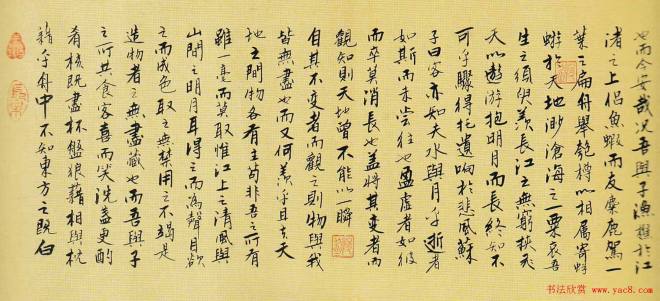 也而今安哉況吾與子漁樵於江
渚之上侶魚蝦而友麋鹿駕一
葉之扁舟舉匏樽以相屬寄蜉
蝣於天地渺滄海之一粟哀吾
生之須臾羨長江之無窮挾飛
以遨游抱明月而長終知不
可乎驟得托遺响於悲風蘇
子曰客亦知夫水與月乎逝者
如斯而未嘗往也盈虛者如彼
而卒莫消長也蓋將其變者而
觀知則天地曾不能以一瞬
自其不變者而觀之則物與我
皆無盡也而又何羨乎且夫天
地之間物各有主苟非吾之所有
雖一毫而莫取惟江上之清風與
山間之明月耳得之而為聲目欲
之而成色取之無禁用之不竭是
造物者之無盡藏也而吾與子
之所共食客喜而笑洗盞更酌
肴核既盡杯盤狼藉相與枕
藉乎舟中不知東方之既白
书法欣赏
www.yac8.com